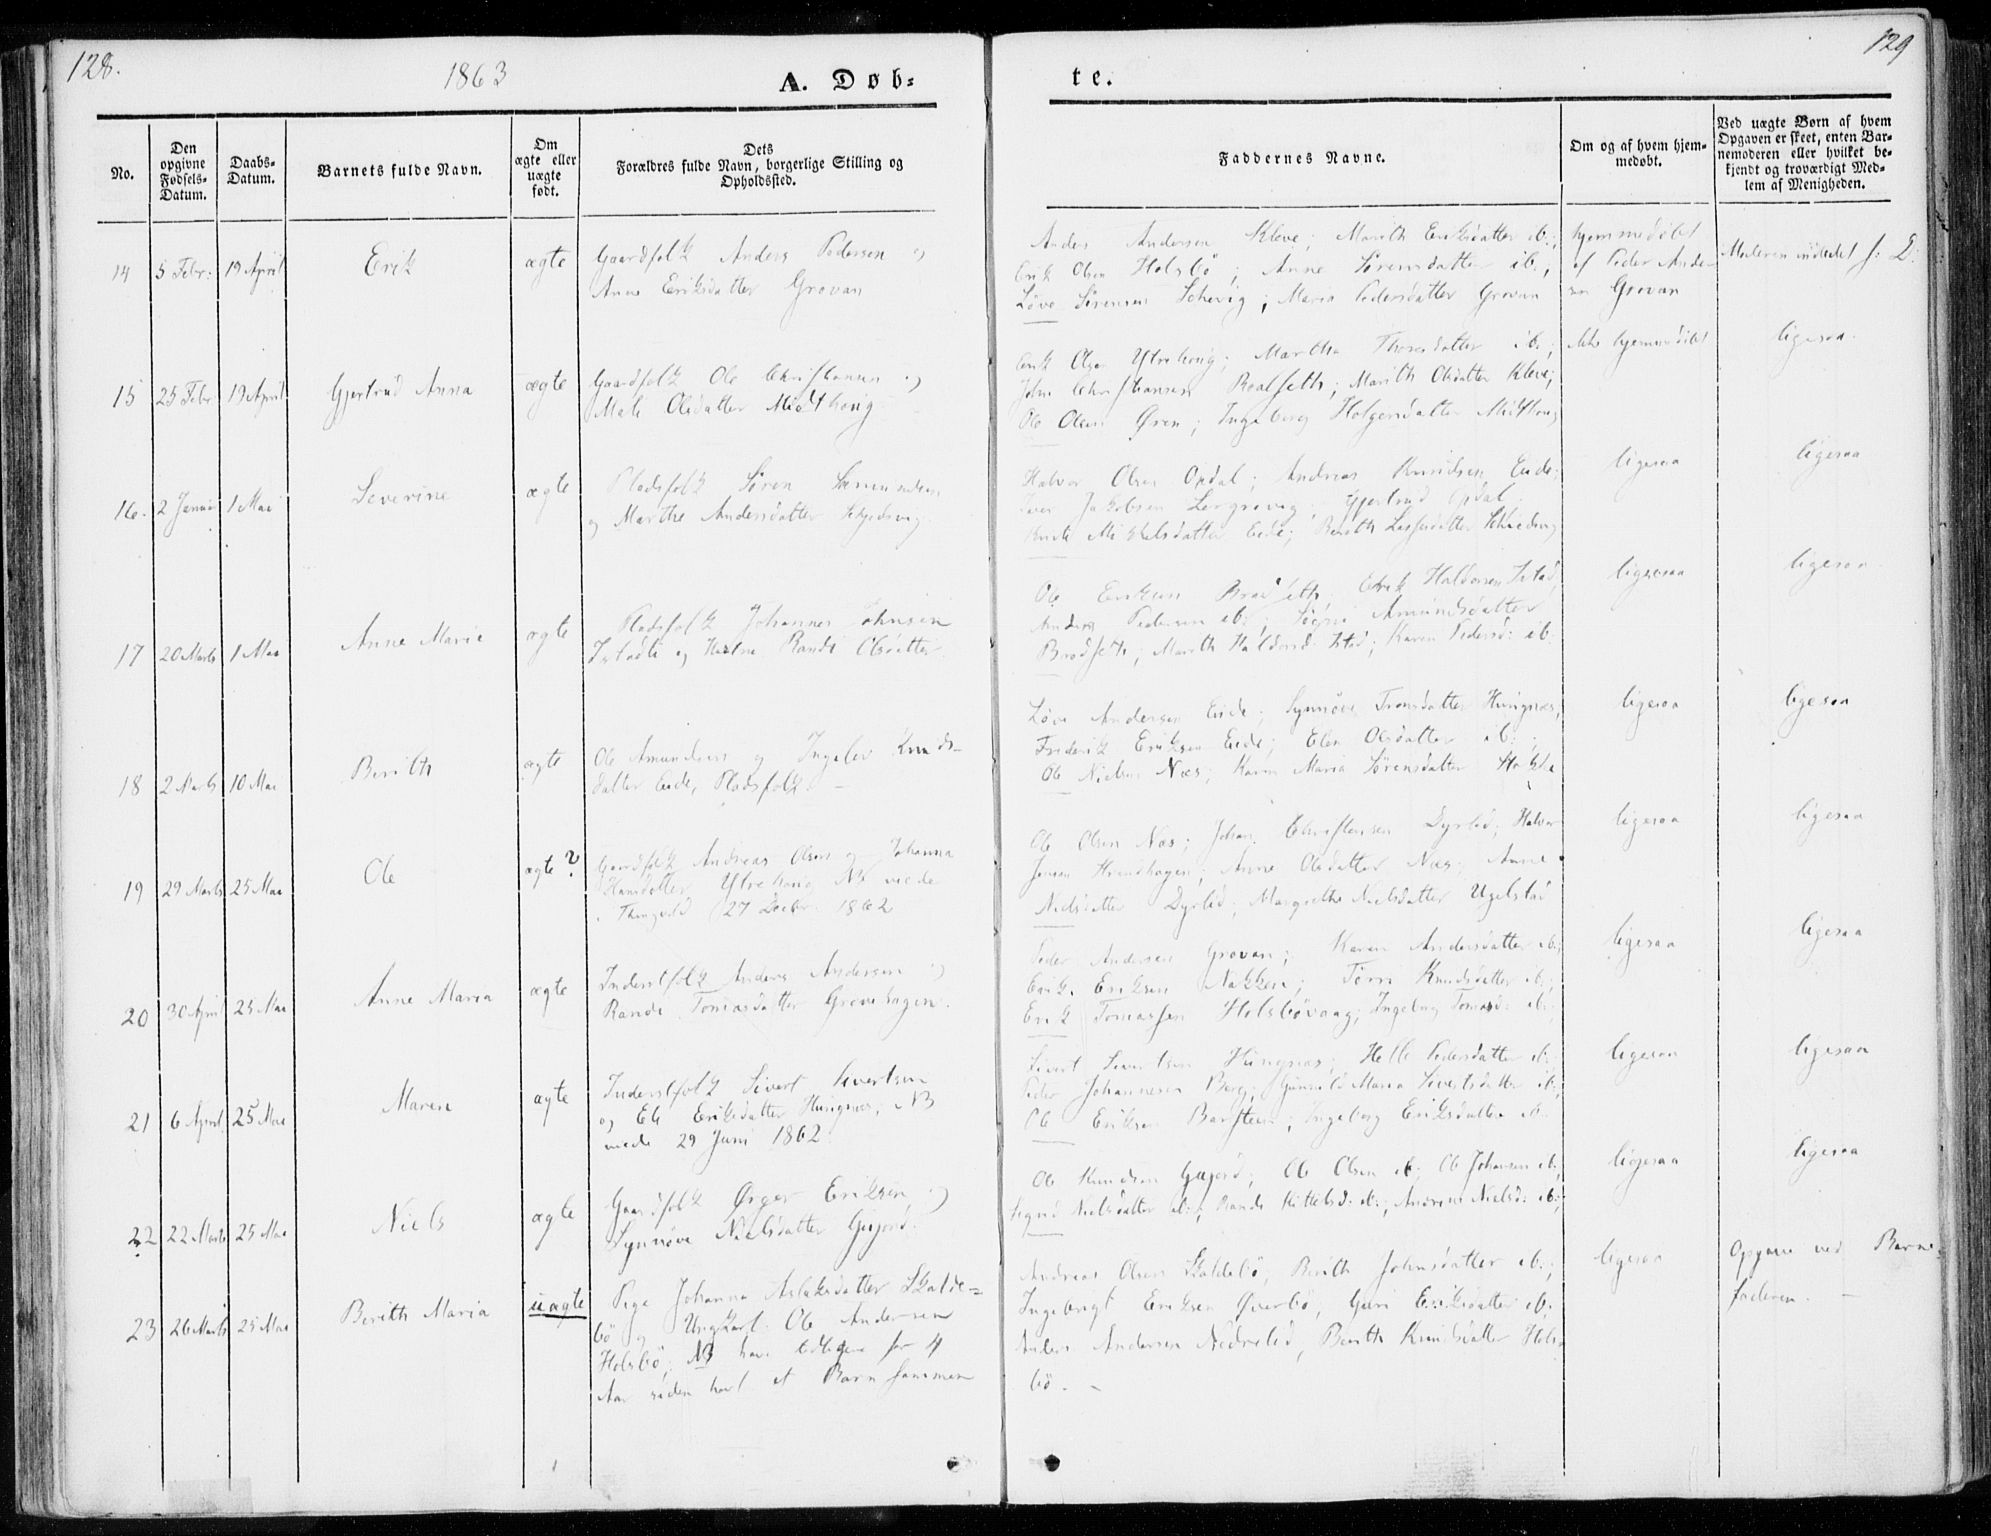 128.
1863
A. Døb-
te.
129
No.
Den
opgivne
Fødsels-
Datum.
Daabs-
Datum.
Barnets fulde Navn.
Om
ægte eller
uægte
født.
Dets
Forældres fulde Navn, borgerlige Stilling og
Opholdssted.
Faddernes Navne.
Om og af hvem hjem-
medøbt.
Ved uægte Børn af hvem
Opgaven er skeet, enten Bar-
nemoderen eller hvilket be-
kjendt og troværdigt Med-
lem af Menigheden.
14 5 Febr: 19 April Erik ægte
Gaardfolk Anders Pedersen og
Anne Eriksdatter Grovan
Anders Andersen Kleve; Marith Eriksdatter ib.;
Erik Olsen Holsbö; Anne Sörensdatter ib.;
Löve Sörensen; Maria Pedersdatter Grovan
hjemmedöbt
af Peder Ander-
sen Grovan
Moderen indledet s: D:
15 25 Febr 19 April Gjertrud Anna ægte
Gaardfolk Ole Christiansen og
Mali Olsdatter Midthoug
Erik Olsen Ytrehoug; Martha Thoresdatter ib.;
John Christiansen Roalseth; Marith Olsdatter Kleve;
Ole Olsen Ören; Ingeborg Holgersdatter Midthoug
ikke hjemmedöbt
ligesaa.
16. 2 Januar 1 Mai Severine ægte
Pladsfolk Sören Samundsen
og Marthe Andersdatter
Halvor Olsen Opdal; Andreas Knudsen Eide;
Iver Jakobsen Lergrovig; Gjertrud Opdal
Mikkelsdatter Eide; Berith
ligesaa
ligesaa
17 20 Marts 1 Mai Anne Marie ægte
Pladsfolk Johannes Johnsen
og Hustru Randi Olsdatter.
Ole Eriksen Bradseth; Erik Haldorsen Istad;
Anders Pedersen ib.; Amundsdatter
Bradseth; Marith Haldorsd. Istad; Karen Pedersd: ib.
ligesaa
ligesaa.
18 2 Marts 10 Mai Berith ægte
Ole Amundsen og Ingelev Knuds-
datter Eide, Pladsfolk. –
Löve Andersen Eide; Synnöve Tronsdatter Hungnes;
Frederik Eriksen Eide; Elen Olsdatter ib.;
Ole Nielsen Næs; Karen Maria Sörensdatter
ligesaa
ligesaa
19 29 Marts 25 Mai Ole ægte?
Gaardfolk Andreas Olsen og Johanna
Hansdatter Ytrehoug NB viede
i Thingvold 27 Decbr. 1862
Ole Olsen Næs; Johan Christensen Dyrlid; Halvor
Jensen; Anne Olsdatter Næs; Anne
Nielsdatter Dyrlid; Margrethe Nielsdatter Ugelstad
ligesaa
ligesaa
20 30 April 25 Mai Anne Maria ægte
Inderstfolk Anders Andersen og
Randi Tomasdatter Grovehagen.
Peder Andersen Grovan; Karen Andersdatter ib;
Erik Eriksen Nakken; Knudsdatter ib.;
Erik Tomassen Holsbövaag; Ingeborg Tomasd: ib.
ligesaa
ligesaa
21 6 April 25 Mai Maren ægte
Inderstfolk Sivert Sivertsen
og Eli Eriksdatter Hungnes; NB
viede 29 Juni 1862.
Sivert Sivertsen Hungnes; Helle Pedersdatter ib.
Peder Johannesen Berg; Gunild Maria Sivertsdatter ib;
Ole Eriksen; Ingeborg Eriksdatter ib.
ligesaa
ligesaa
22 22 Marts 25 Mai Niels ægte
Gaardfolk Örger Eriksen og
Synnöve Nielsdatter Gujord.
Ole Knudsen Gujord; Ole Olsen ib; Ole Johansen ib;
Sigrid Nielsdatter ib.; Randi Kittelsd: ib.; Nielsd: ib.;
ligesaa
ligesaa
23 26 Marts 25 Mai Berith Maria uægte
Pige Johanna Aslaksdatter Skalde-
bö og Ungkarl Ole Andersen
Holsbö; NB have tidligere for 4
Aar siden havt et Barn sammen
Andreas Olsen Skaldebö, Berith Johnsdatter ib.;
Ingebrigt Eriksen Överbö, Guri Eriksdatter ib.
Anders Andersen Nedrelid, Berith Knudsdatter Hols-
bö. –
ligesaa
Opgave ved Barne-
faderen. –